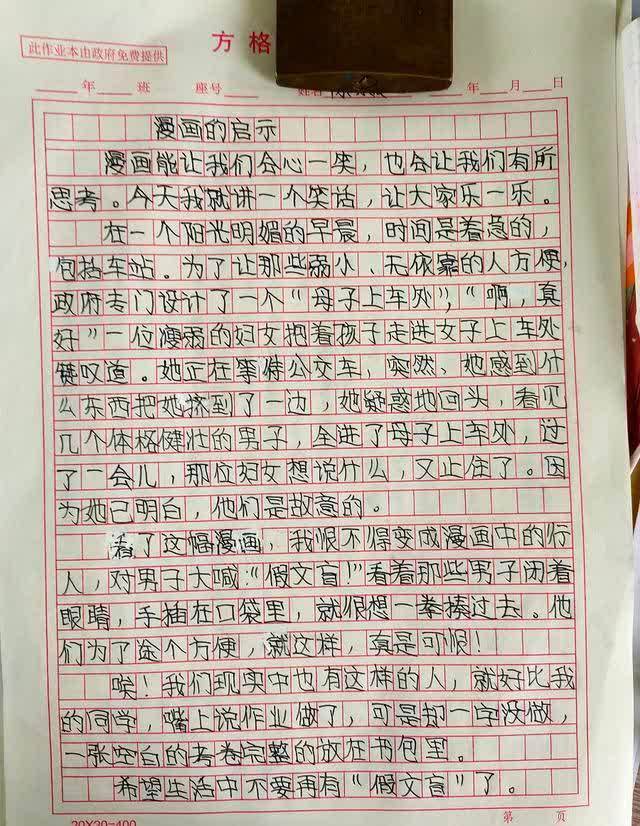 此作业本由政府免费提供
方格
年 班 座号 姓名 年 月 日
漫画的启示
漫画能让我们会心一笑，也会让我们有所
思考。今天我就讲一个笑话，让大家乐一乐。
在一个阳光明媚的早晨，时间是着急的，
包括车站。为了让那些弱小、无依靠的人方便，
政府专门设计了一个“母子上车处”，“啊，真
好”一位瘦弱的妇女把着孩子走进女子上车处
叹道。她正在等待公交车，突然、她感到什
么东西把她挤到了一边，她疑惑地回头，看见
几个体格健壮的男子，全进了母子上车处，过
了一会儿，那位妇女想说什么，又止住了。因
为她已明白，他们是故意的。
看了这幅漫画，我恨不得变成漫画中的行
人，对男子大喊：“假文盲！”看着那些男子闭着
眼睛，手插在口袋里，就很想一拳揍过去。他
们为了途个方便，就这样，真是可恨！
唉！我们现实中也有这样的人，就好比我
的同学，嘴上说作业做了，可是却一字没做，
一张空白的考卷完整的放在书包里。
希望生活中不要再有“假文盲”了。
20X20=400
第 页